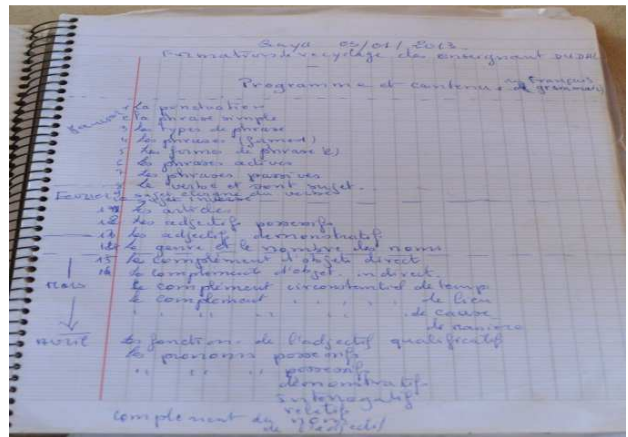 Gaya 05/01/2013
Formation recyclage des enseignant DUDAL
Programme et contenus en français
de grammaire
la ponctuation
la phrase simple
3 les types de phrase
4 les phrases
5 les formes de phrase
6 les phrases actives
7 les phrases passives
le verbe et sont sujet.
sujet éloigné du verbe
sujet inversé
les articles
les adjectifs possessifs
les adjectifs demonstratifs
le genre et le nombre des noms
15 le complement d'objet direct
16 le complement d'objet indirect.
Mars
le complement circonstantiel de temps
le complement " " " de lieu
" " " " de cause
de maniere
Avril
les fonctions de l'adjectif qualificatif
les pronoms possessifs
" " " possessif
demonstratif
interrogatif
relatif
complement du nom
de l'adjectif